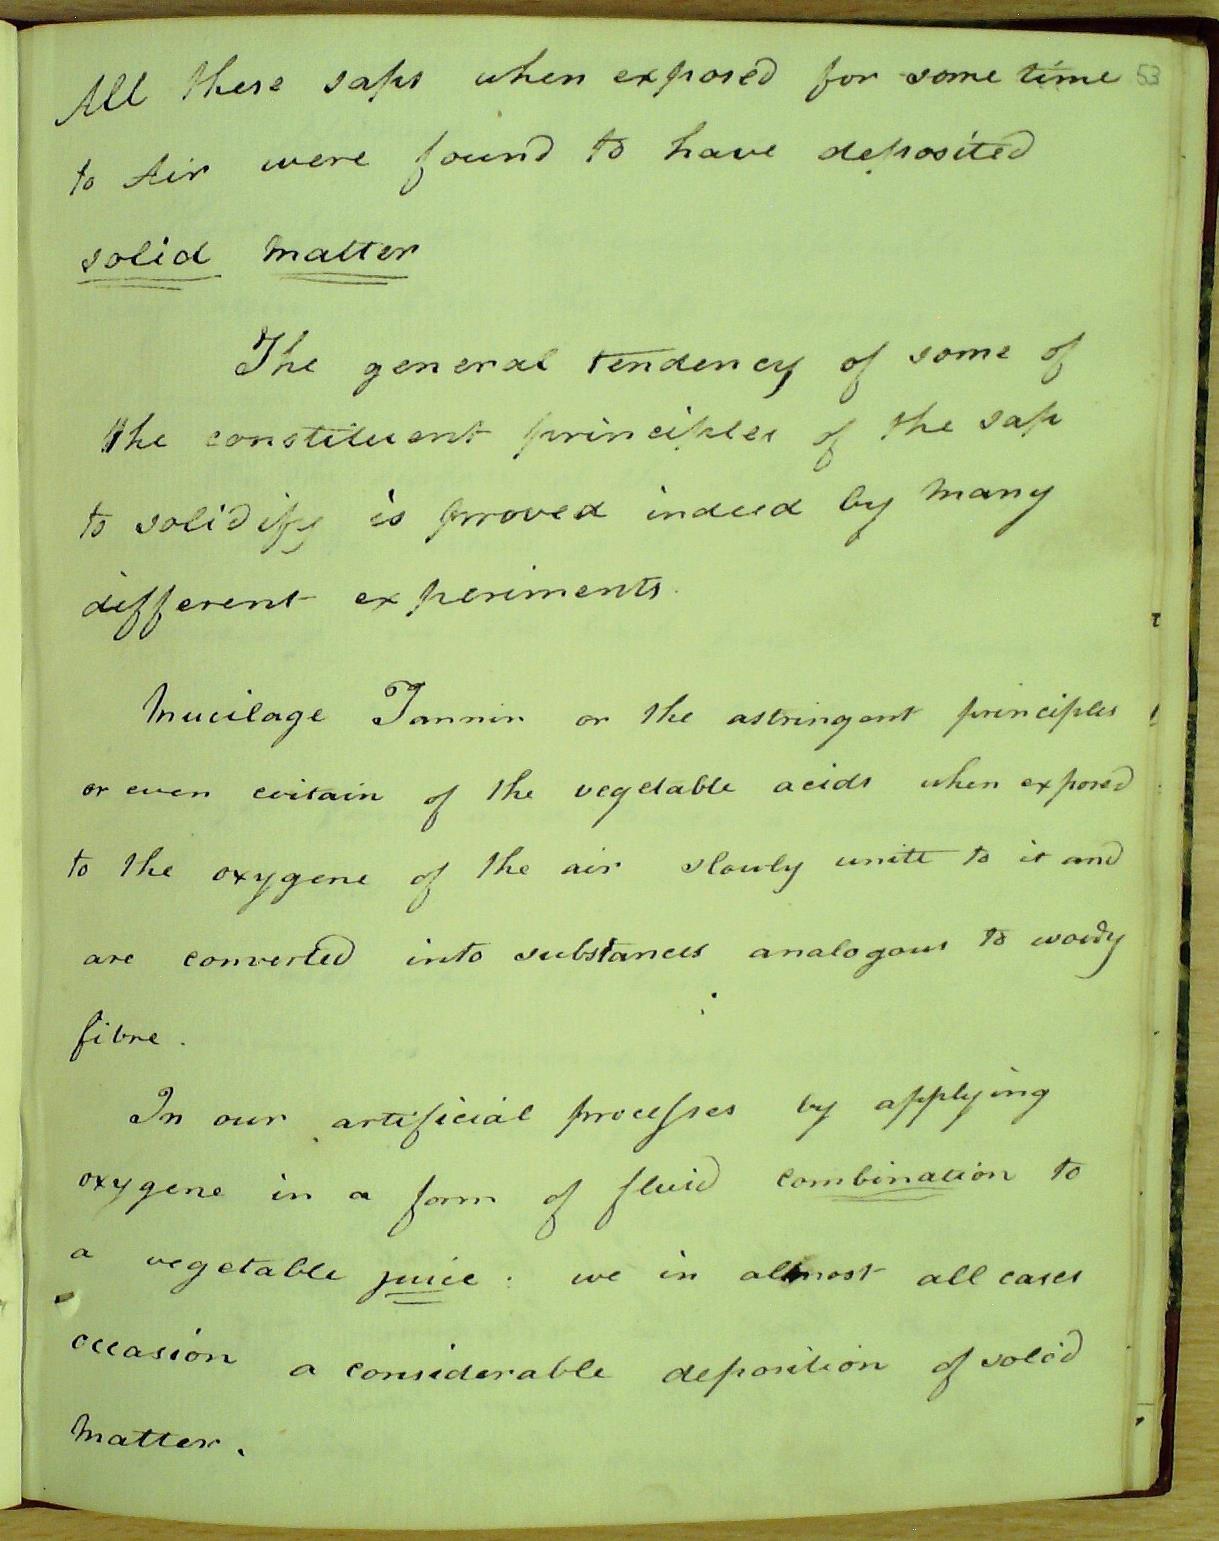 All these saps when exposed for some time 53
to Air were found to have deposited
solid matter
The general tendency of some of
the constituent principles of the sap
to solidify is proved indeed by many
different experiments.
Mucilage Tannin or the astringent principles
or even certain of the vegetable acids when exposed
to the oxygene of the air slowly unite to it and
are converted into substances analogous to woody
fibre.
In our artificial processes by applying
oxygene in a form of fluid combination to
a vegetable juice: we in almost all cases
occasion a considerable deposition of solid
matter.